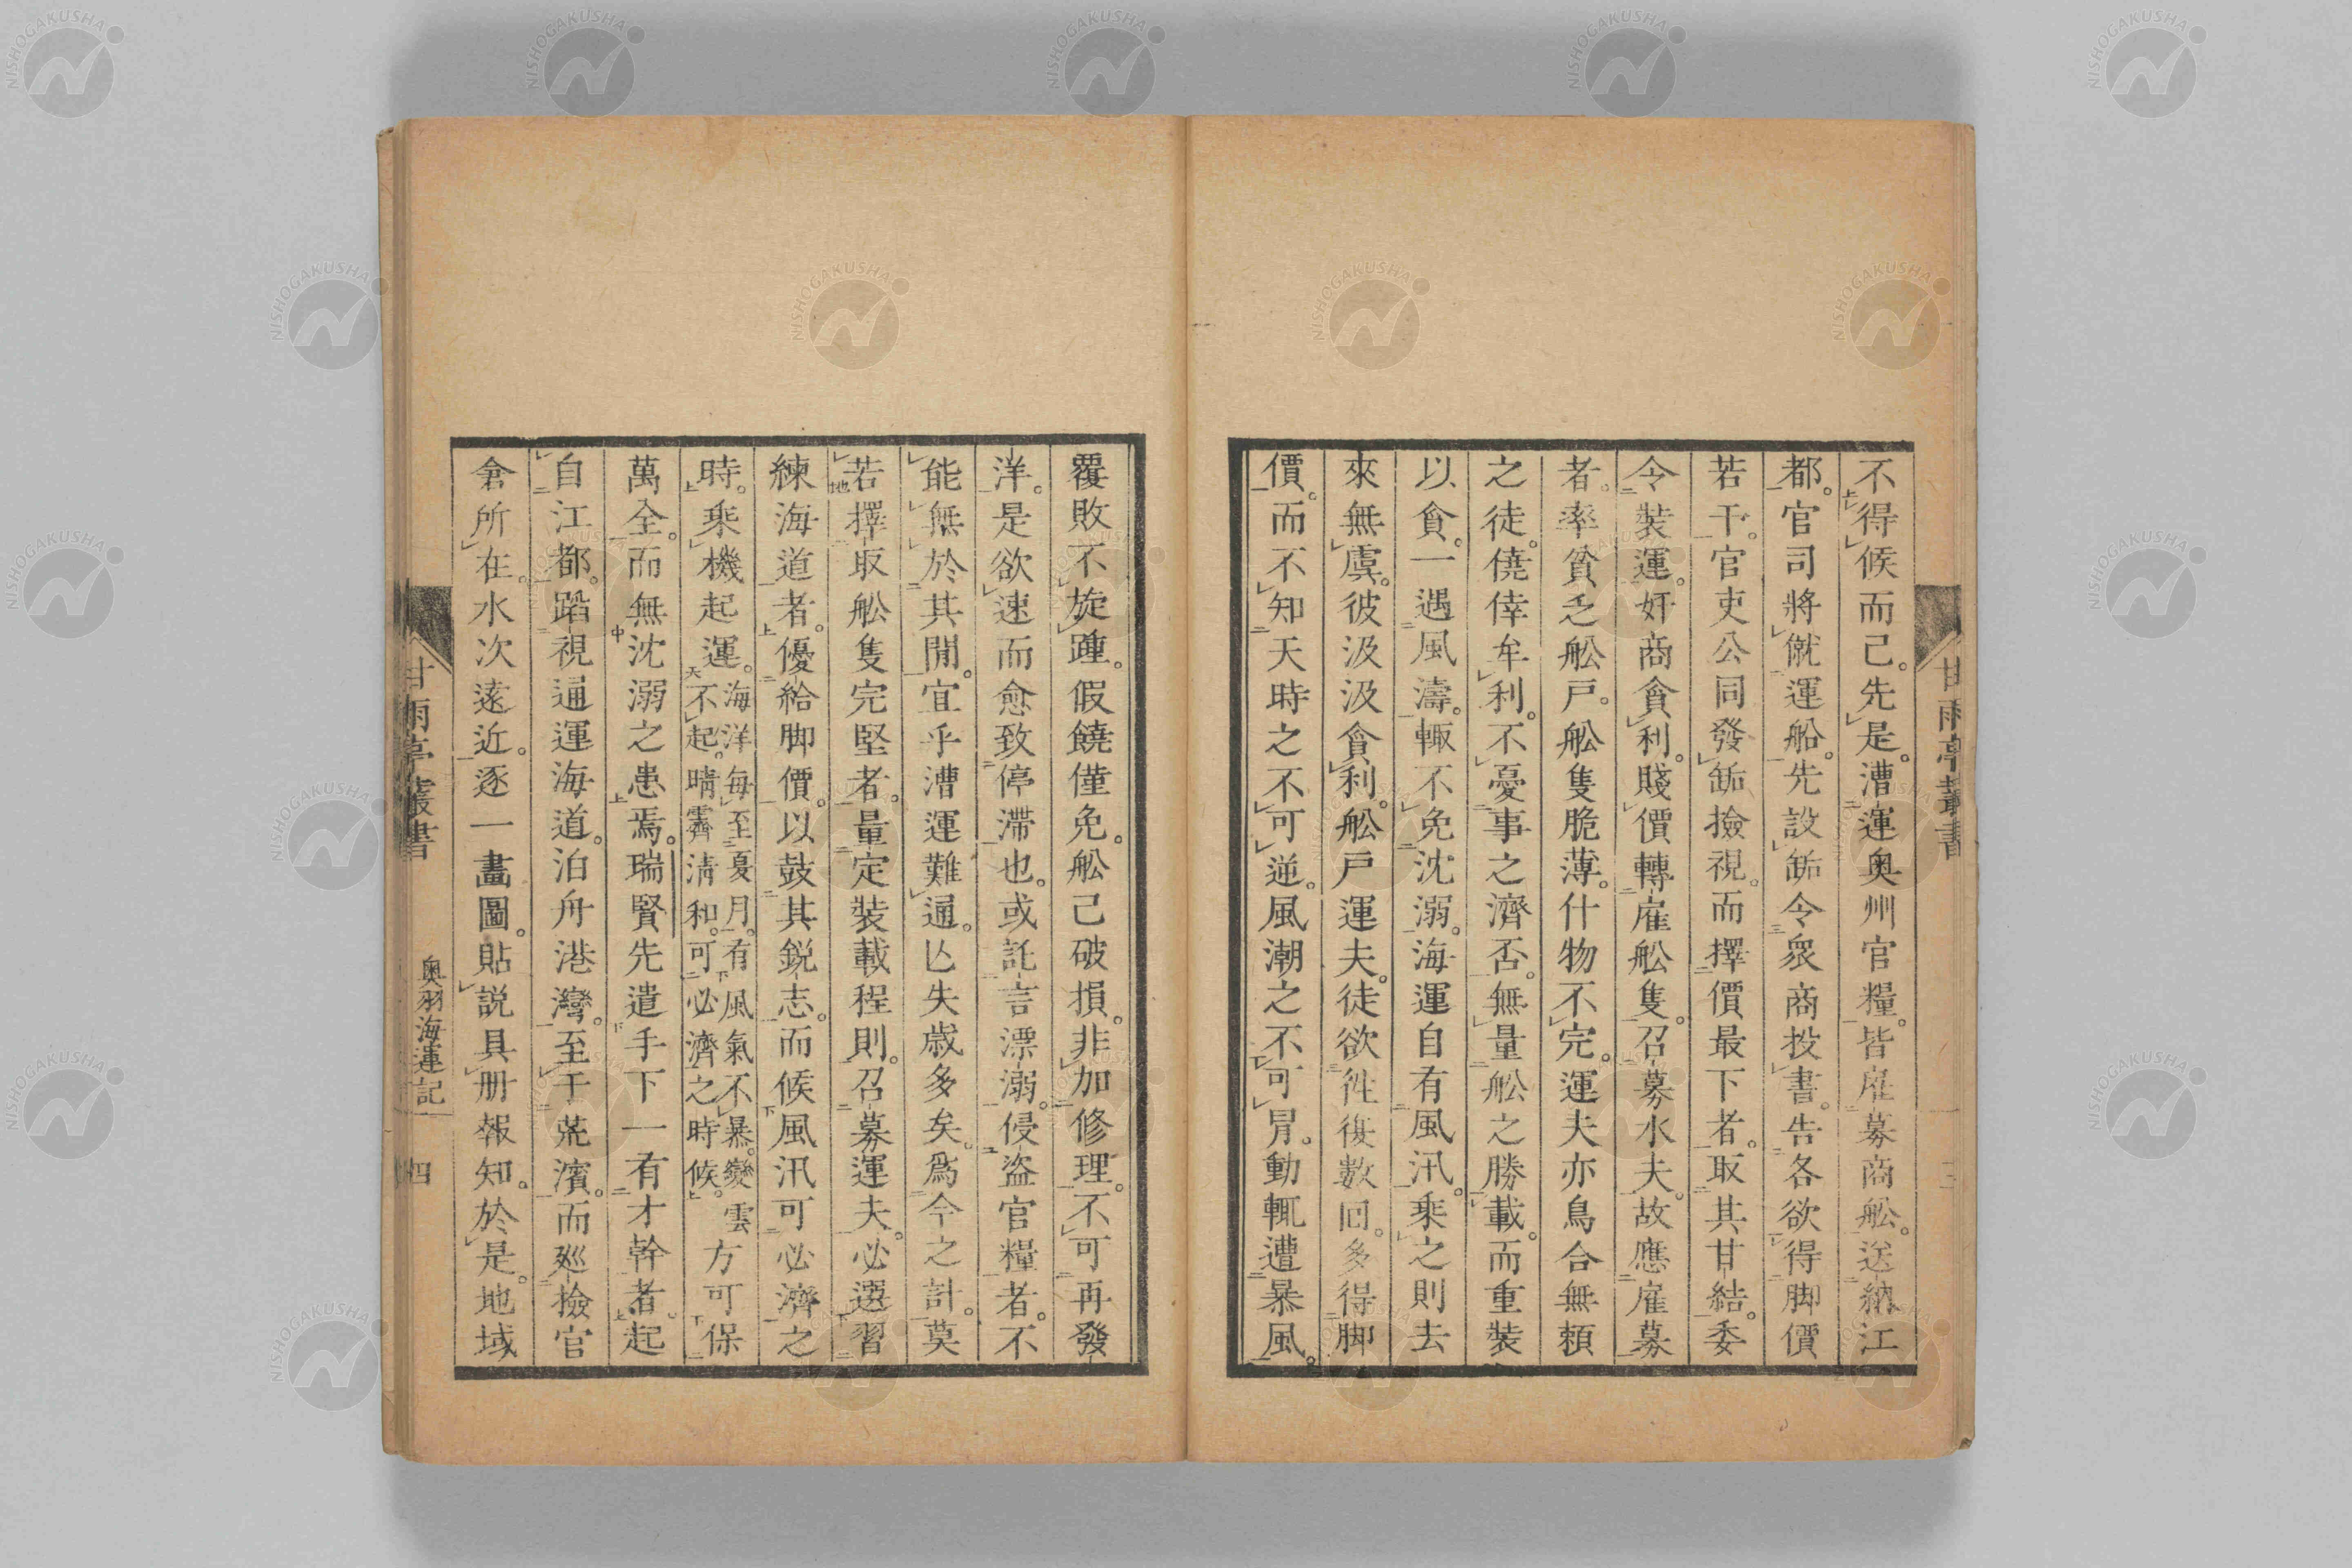 不得候而已。先是。漕運奥州官糧。皆雇募商舩。送納江
都。官司將僦運船。先設缿令衆商投書。告各欲得脚價
若干。官吏公同發缿撿視。而擇價最下者。取其甘結。委
令裝運。奸商貪利。賤價轉雇舩隻。召募水夫。故應雇募
者。率貧乏舩戸。舩隻脆薄。什物不完。運夫亦烏合無頼
之徒。僥倖牟利。不憂事之濟否。無量舩之勝載。而重裝
以貪。一遇風濤。輙不免沈溺。海運自有風汛。乘之則去
來無虞。彼汲汲貪利。舩戸運夫。徒欲徃復數回。多得脚
價。而不知天時之不可逆。風潮之不可冐。動輒遭暴風。
甘雨亭叢書
三
覆敗不旋踵。假饒僅免。舩已破損。非加修理。不可再發
洋。是欲速而愈致停滯也。或託言漂溺。侵盜官糧者。不
能無於其閒。宜乎漕運難通。亾失歳多矣。爲今之計。莫
若擇取舩隻完堅者。量定裝載程則。召募運夫。必選習
練海道者。優給脚價。以鼓其鋭志。而候風汛可必濟之
時。乘機起運。海洋毎至夏月。有風氣不暴。變雲不起。晴霽淸和。可必濟之時候。方可保
萬全。而無沈溺之患焉。瑞賢先遣手下一有才幹者。起
自江都。踏視通運海道。泊舟港灣。至于荒濱。而廵撿官
倉所在。水次遠近。逐一畫圖。貼説具册報知。於是。地域
甘雨亭叢書
奥羽海運記
四
NISHOGAKUSHA